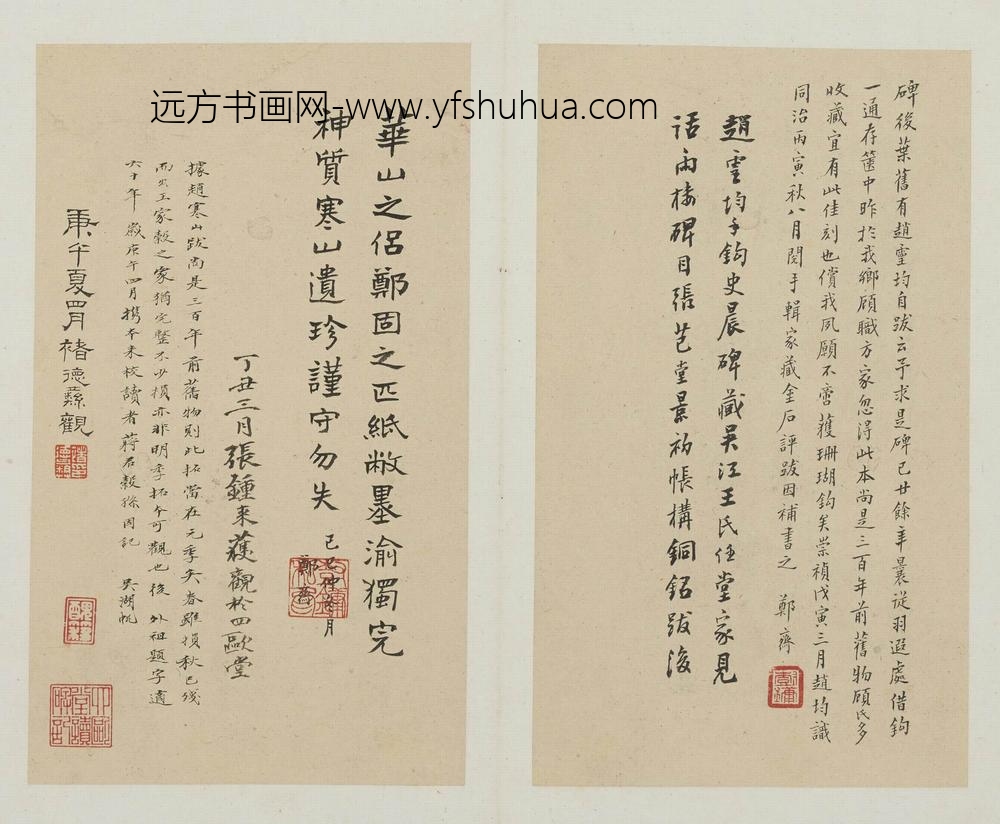 远方书画网-www.yfshuhua.com
碑後葉舊有趙靈均自跋云予求是碑已廿餘年曩從羽遐處借鉤
一通存篋中昨於我鄉顧職方家忽得此本尚是三百年前舊物顧氏多
收藏宜有此佳刻也償我夙願不啻獲珊瑚鉤矣崇禎戊寅三月趙均識
同治丙寅秋八月閱手輯家藏金石評跋因補書之 鄭齋
趙靈均手鉤史晨碑藏吳江王氏任堂家見
話雨樓碑目張芑堂景初帳構銅銘跋後
華山之侶鄭固之匹紙敝墨渝獨完
神質寒山遺珍謹守勿失 己巳仲冬月
鄭齋
丁丑三月張鍾來獲觀於四歐堂
據趙寒山跋尚是三百年前舊物則此拓當在元季矣春雖損秋已殘
而出王家穀之家猶完整不少損亦非明季拓本可觀也後 外祖題字適
六十年歲庚午四月攜本來校讀者蔣石穀孫因記 吳湖帆
庚午夏四月褚德彝觀